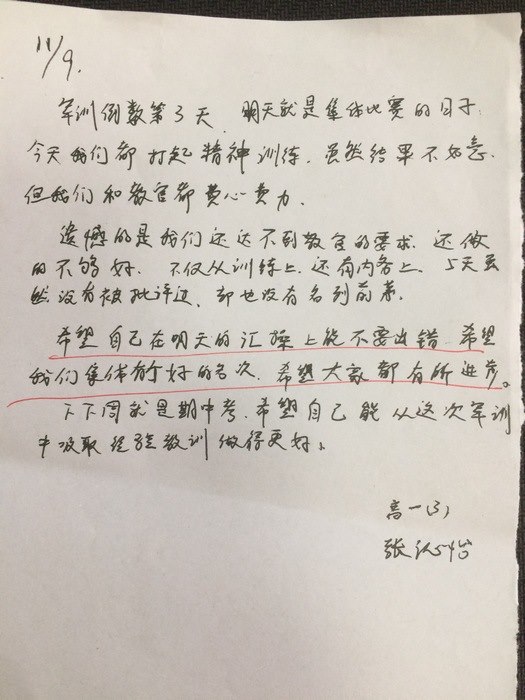 11/9.
军训倒数第3天. 明天就是集体比赛的日子.
今天我们都打起精神训练. 虽然结果不如意.
但我们和教官都费心费力.
遗憾的是我们还达不到教官的要求. 还做
的不够好. 不仅从训练上. 还有内务上. 5天虽
然没有被批评过, 却也没有名列前茅.
希望自己在明天的汇操上能不要出错. 希望
我们集体有个好的名次. 希望大家都有所进步。
下下周就是期中考. 希望自己能从这次军训
中吸取经验教训做得更好。
高一(3)
张沁怡